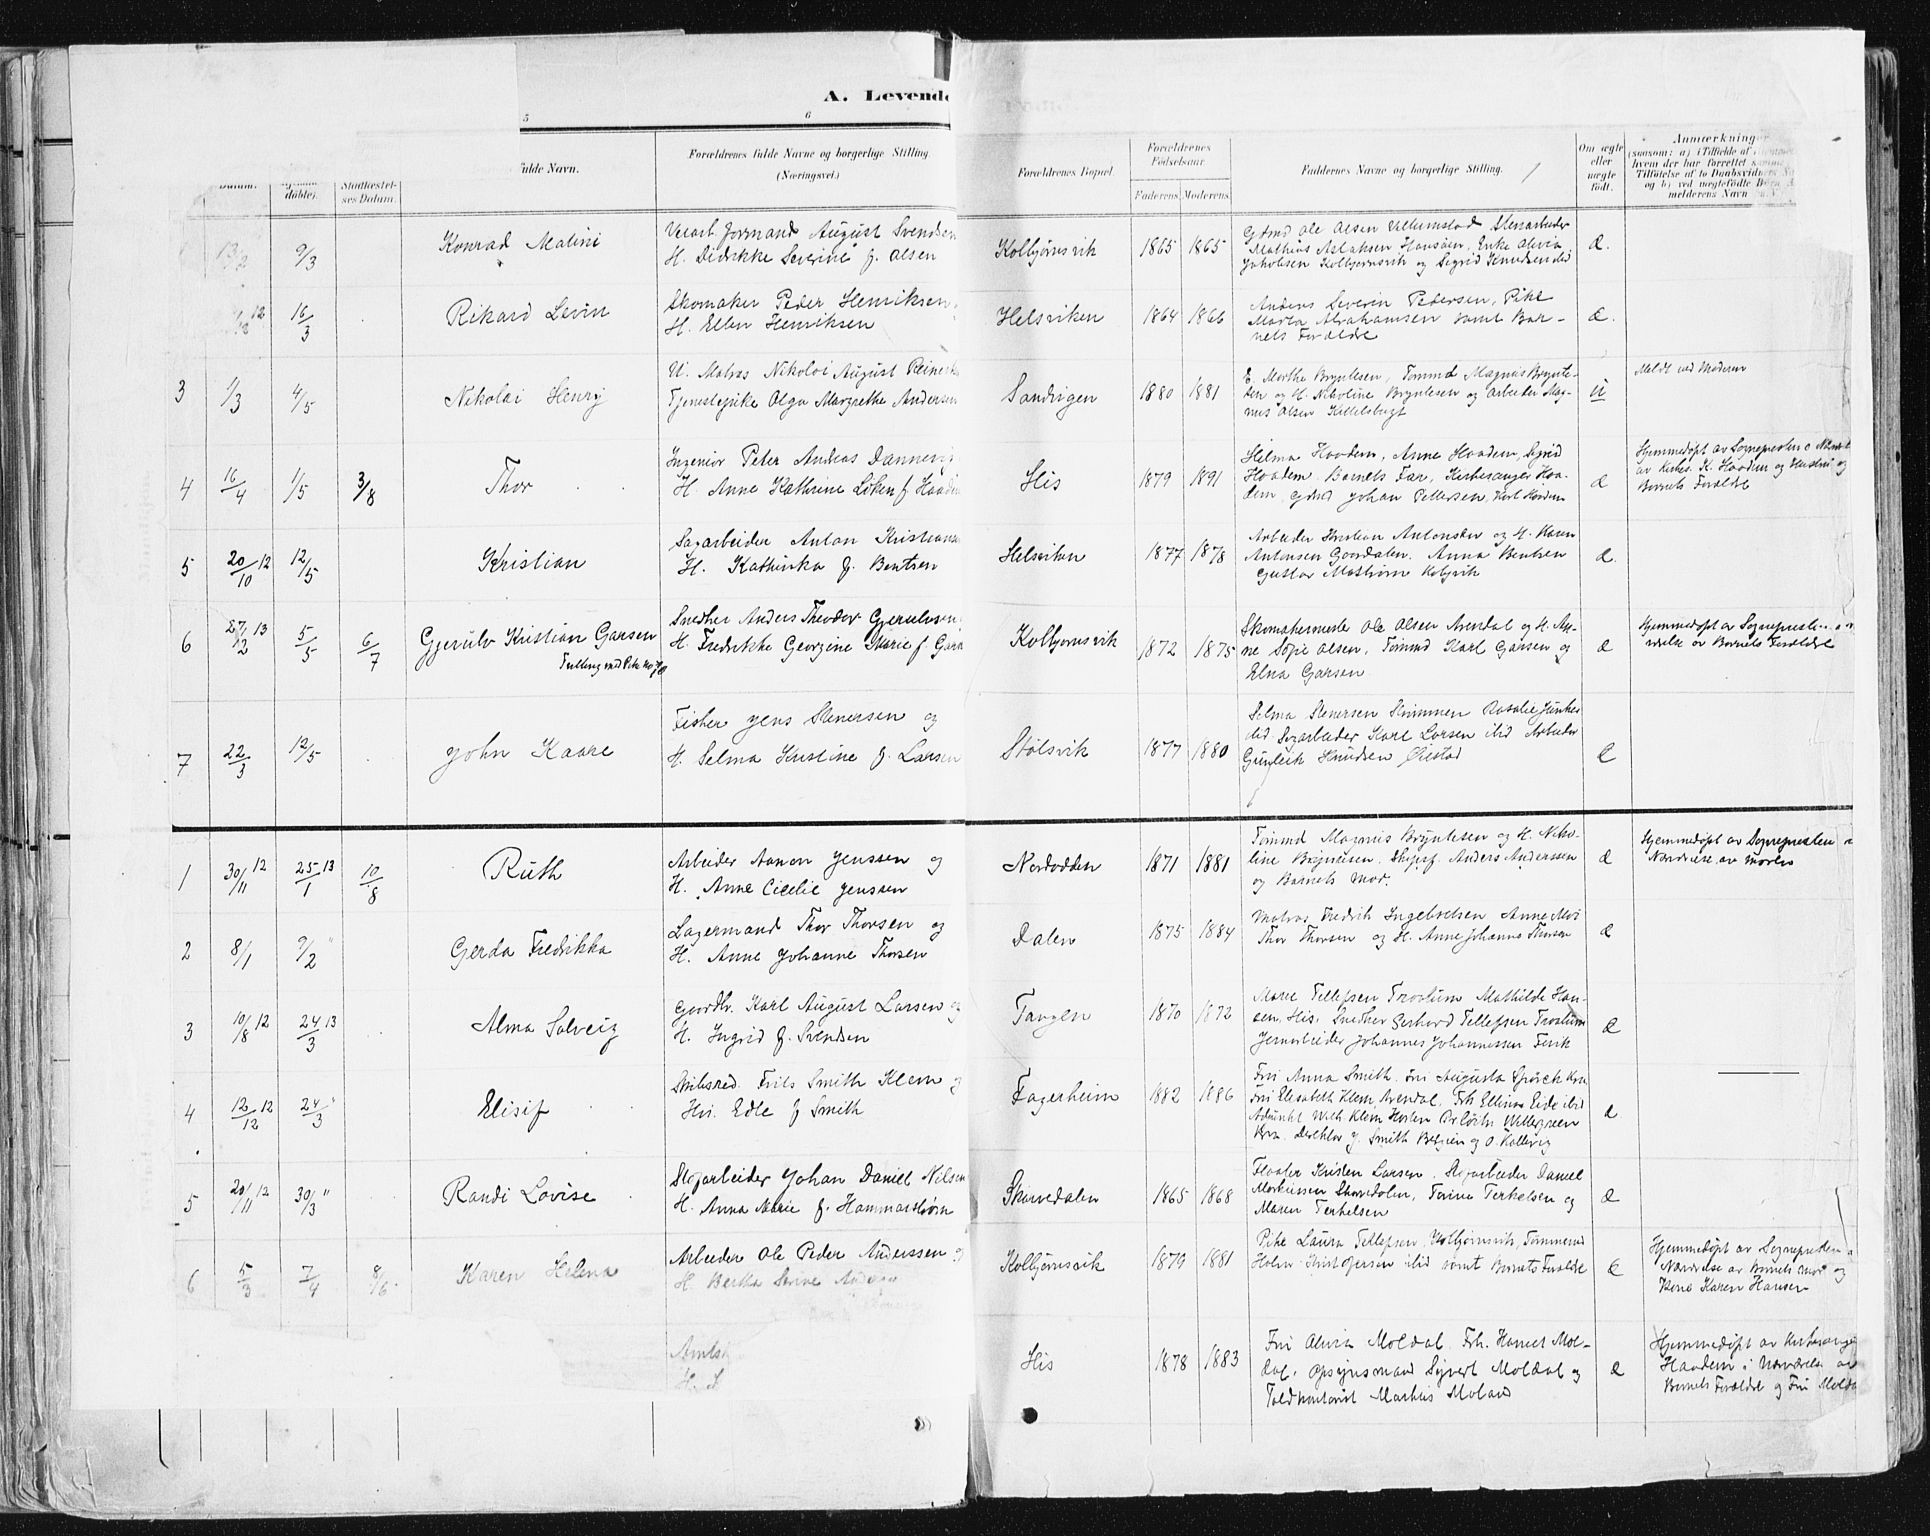 A. Levende
5
6
Datum.
døbte).
Stadfæstel-
ses Datum.
fulde Navn.
Forældrenes fulde Navne og borgerlige Stilling.
(Næringsvei.)
Forældrenes Bopæl.
Forældrenes
Fødselsaar
Faderens.
Moderens.
Faddernes Navne og borgerlige Stilling.
Om ægte
eller
uægte
født.
Anmærkninger
(saasom: a) i Tilfælde af
hvem der har forrettet samme
Tilføielse af to Daabsvidners
og b) ved uægtefødte Børn
melderens Navn
13/2
9/3
Konrad Matini
Verksf. formand August Svendsen
H. Didrikke Severine f. Olsen
Kolbjørnsvik
1865
1865
Gdmd Ole Olsen Stenarbeider
Mathias Aslaksen Enke Olivia
Jakobsen Kolbjørnsvik og Sigrid Knudsen ibd
Æ.
12
16/3
Rikard Levin
Skomaker Peder Henriksen
H. Ellen Henriksen
Helsviken
1864
1866
Anders Severin Pedersen, Pike
Marta Abrahamsen samt Bar-
nets Forældre
Æ.
3
1/3
4/5
Nikolai Henry
U. Matros Nikolai August
Tjenestepike Olga Margrethe Andersen
Sandvigen
1880
1881
E. Marthe Bryntesen, Tømmd Magnus Brynte-
sen og H. Nikoline Bryntesen og arbeider Mag-
nus Olsen Kittelsbugt
U
Meldt ved Moderen
4
16/4
1/5
3/8
Thor
Ingeniør Peter Andreas Dannevig
H. Anne Kathrine Løken f. Haadem
His
1879
1891
Helma Haadem, Anne Haadem, Sigrid
Haadem, Barnets Far, Kirkesanger Haa-
dem, Gdmd Johan Pettersen, Karl Haadem
Æ
Hjemmedøpt av Sognepresten i
av Kirkes. K. Haadem og Hustru og
Barnets Forældre
5
20/10 12
12/5
Kristian
Sagarbeider Anton Kristians
H. Kathinka f. Bentsen
Helsviken
1877
1878
Arbeider Kristian Antonsen og H. Karen
Antonsen Gaardalen. Anna Bentsen
Gustav Kolbjvik
Æ.
6
27/12 13
5/5
6/7
Gjerulv Kristian Garsen
Tvilling med Pike No 70
Snedker Anders Theodor Gjerulvsen
H. Fredrikke Georgine Marie f. Gars
Kolbjørnsvik
1872
1875
Skomakermester Ole Olsen Arendal og H. An-
ne Sofie Olsen, Tømmd Karl Garsen og
Elna Garsen
Æ
Hjemmedøpt av Sognepresten i
værelse av Barnets Forældre
7
22/3
12/5
John Kaare
Fisker Jens Stenersen og
H. Selma Kristine f. Larsen
Stølsvik
1877
1880
Selma Stenersen Rosalie Junker
ibid Sagarbeider Karl Larsen ibid Arbeider
Gunleik Knudsen Øiestad
Æ
1
30/11 12
25/1 13
10/8
Ruth
Arbeider Aanon Jenssen og
H. Anne Cicelie Jenssen
Nordodden
1871
1881
Tømmd Magnus Bryntesen og H. Niko-
line Bryntesen. Skipsf. Anders Anderssen
og Barnets Mor.
Æ
Hjemmedøpt av Sognepresten i
Nærværelse av Moren
2
8/1
9/2 "
Gerda Fredrikka
Lagermand Thor Thorsen og
H. Anne Johanne Thorsen
Dalen
1875
1884
Matros Fredrik Ingebretsen Anne Moi
Thor Thorsen og H. Anne Johanne Thorsen
Æ
3
10/8 12
24/3 13
Alma Solveig
Gaardbr. Karl August Larsen og
H. Ingrid f. Svendsen
Tangen
1870
1872
Maren Tellefsen Trostum Mathilde Han-
sen, His. Snedker Gerhard Tellefsen Trostum
Jernarbeider Johannes Johannessen Fevik
Æ
4
12/12 12
24/3 "
Elisif
Skibsred. Frits Smith Klem og
Hu. Edle f Smith
Fagerheim
1882
1886
Fru Anna Smith. Fru Augusta Spørck Kra
Fru Elisabeth Klem, Arendal. Frk Ellinor Eide ibid
Adjunkt Wilh Klem Horten
Kra. Direktør J. Smith Bergen og O. Kallevig
Æ
5
20/11 12
30/3 "
Randi Lovise
Sagarbeider Johan Daniel Nilsen
H. Anna Marie f. Hammarstrøm
Skarvedalen
1865
1868
Fløter Kristen Larsen. Sagarbeider Daniel
Markussen Skarvedalen, Torine Terkelsen og
Maren Terkelsen
Æ
6
5/3
7/4
8/6
Karen Helena
Arbeider Ole Peder Anderssen og
H. Berta Serine Anderssen
Kolbjørnsvik
1879
1881
Pike Laura Tellefsen, Kolbjørnsvik, Tømmermd
Holm Kristofersen ibid samt Barnets Forældre
Æ
Hjemmedøpt av Sognepresten i
Nærværelse av Barnets Mor og
Kone Karen Hansen
Amtsk
H. S
His
1878
1883
Fru Olivia Moldal. Frk. Hanna Mol-
dal. Opsynsmand Sivert Moldal og
Toldkontorist Markus Moland
Æ
Hjemmedøpt av Kirkesanger
Haadem i Nærværelse av
Barnets Forældre og Fru Molda